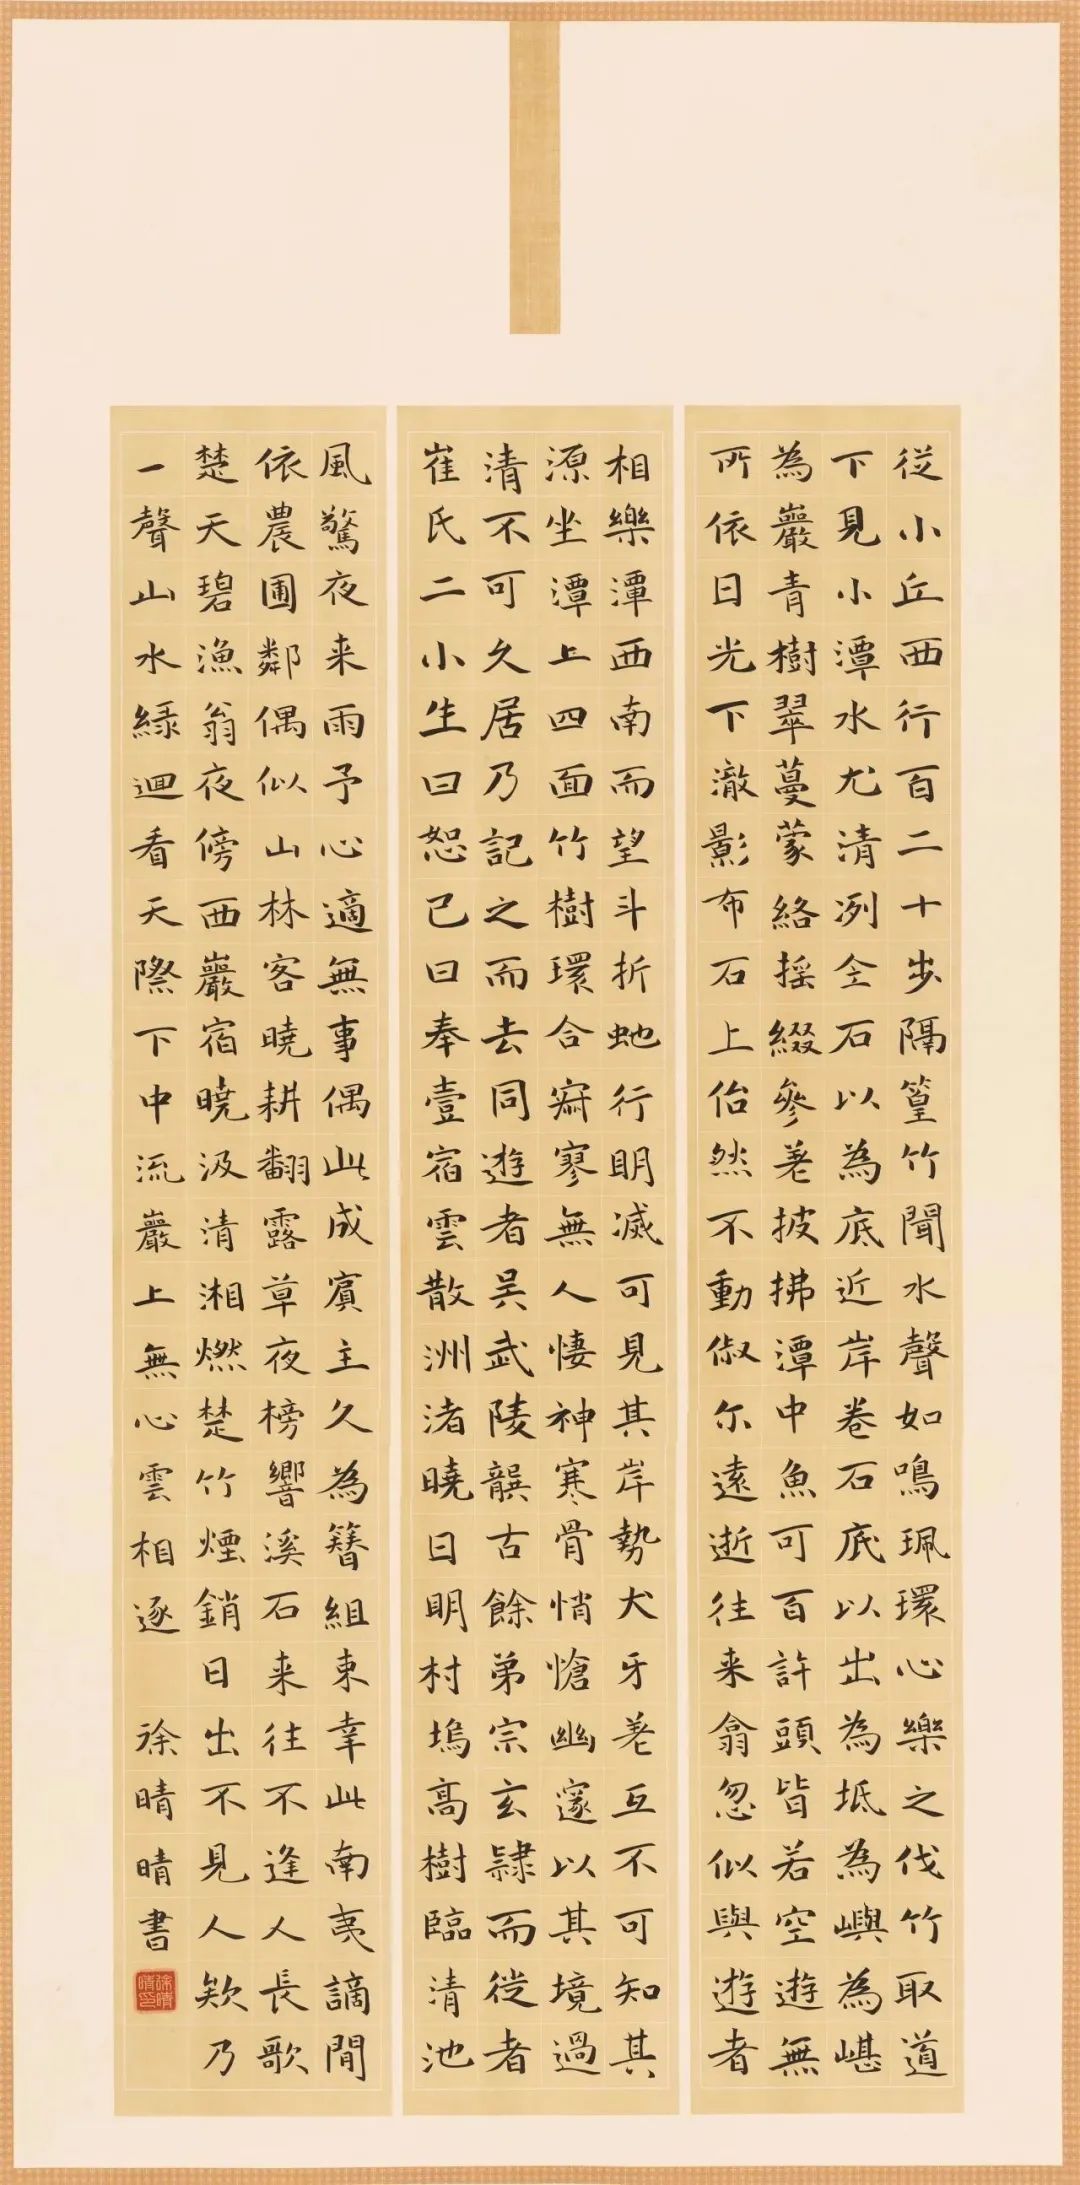 從小丘西行百二十步隔篁竹聞水聲如鳴珮環心樂之伐竹取道
下見小潭水尤清冽全石以為底近岸卷石底以出為坻為嶼為嵁
為巖青樹翠蔓蒙絡揺綴參差披拂潭中魚可百許頭皆若空遊無
所依日光下澈影布石上佁然不動俶尔遠逝往来翕忽似與遊者
相樂潭西南而望斗折虵行明滅可見其岸勢犬牙差互不可知其
源坐潭上四面竹樹環合寂寥無人悽神寒骨悄愴幽邃以其境過
清不可久居乃記之而去同遊者吴武陵龔古餘弟宗玄隸而從者
崔氏二小生曰恕己曰奉壹宿雲散洲渚曉日明村塢高樹臨清池
風驚夜来雨予心適無事偶此成賓主久為簪組束幸此南夷謫閒
依農圃鄰偶似山林客曉耕翻露草夜榜響溪石来往不逢人長歌
楚天碧漁翁夜傍西巖宿曉汲清湘燃楚竹煙銷日出不見人欸乃
一聲山水緑迴看天際下中流巖上無心雲相逐 徐晴晴書
徐晴晴印